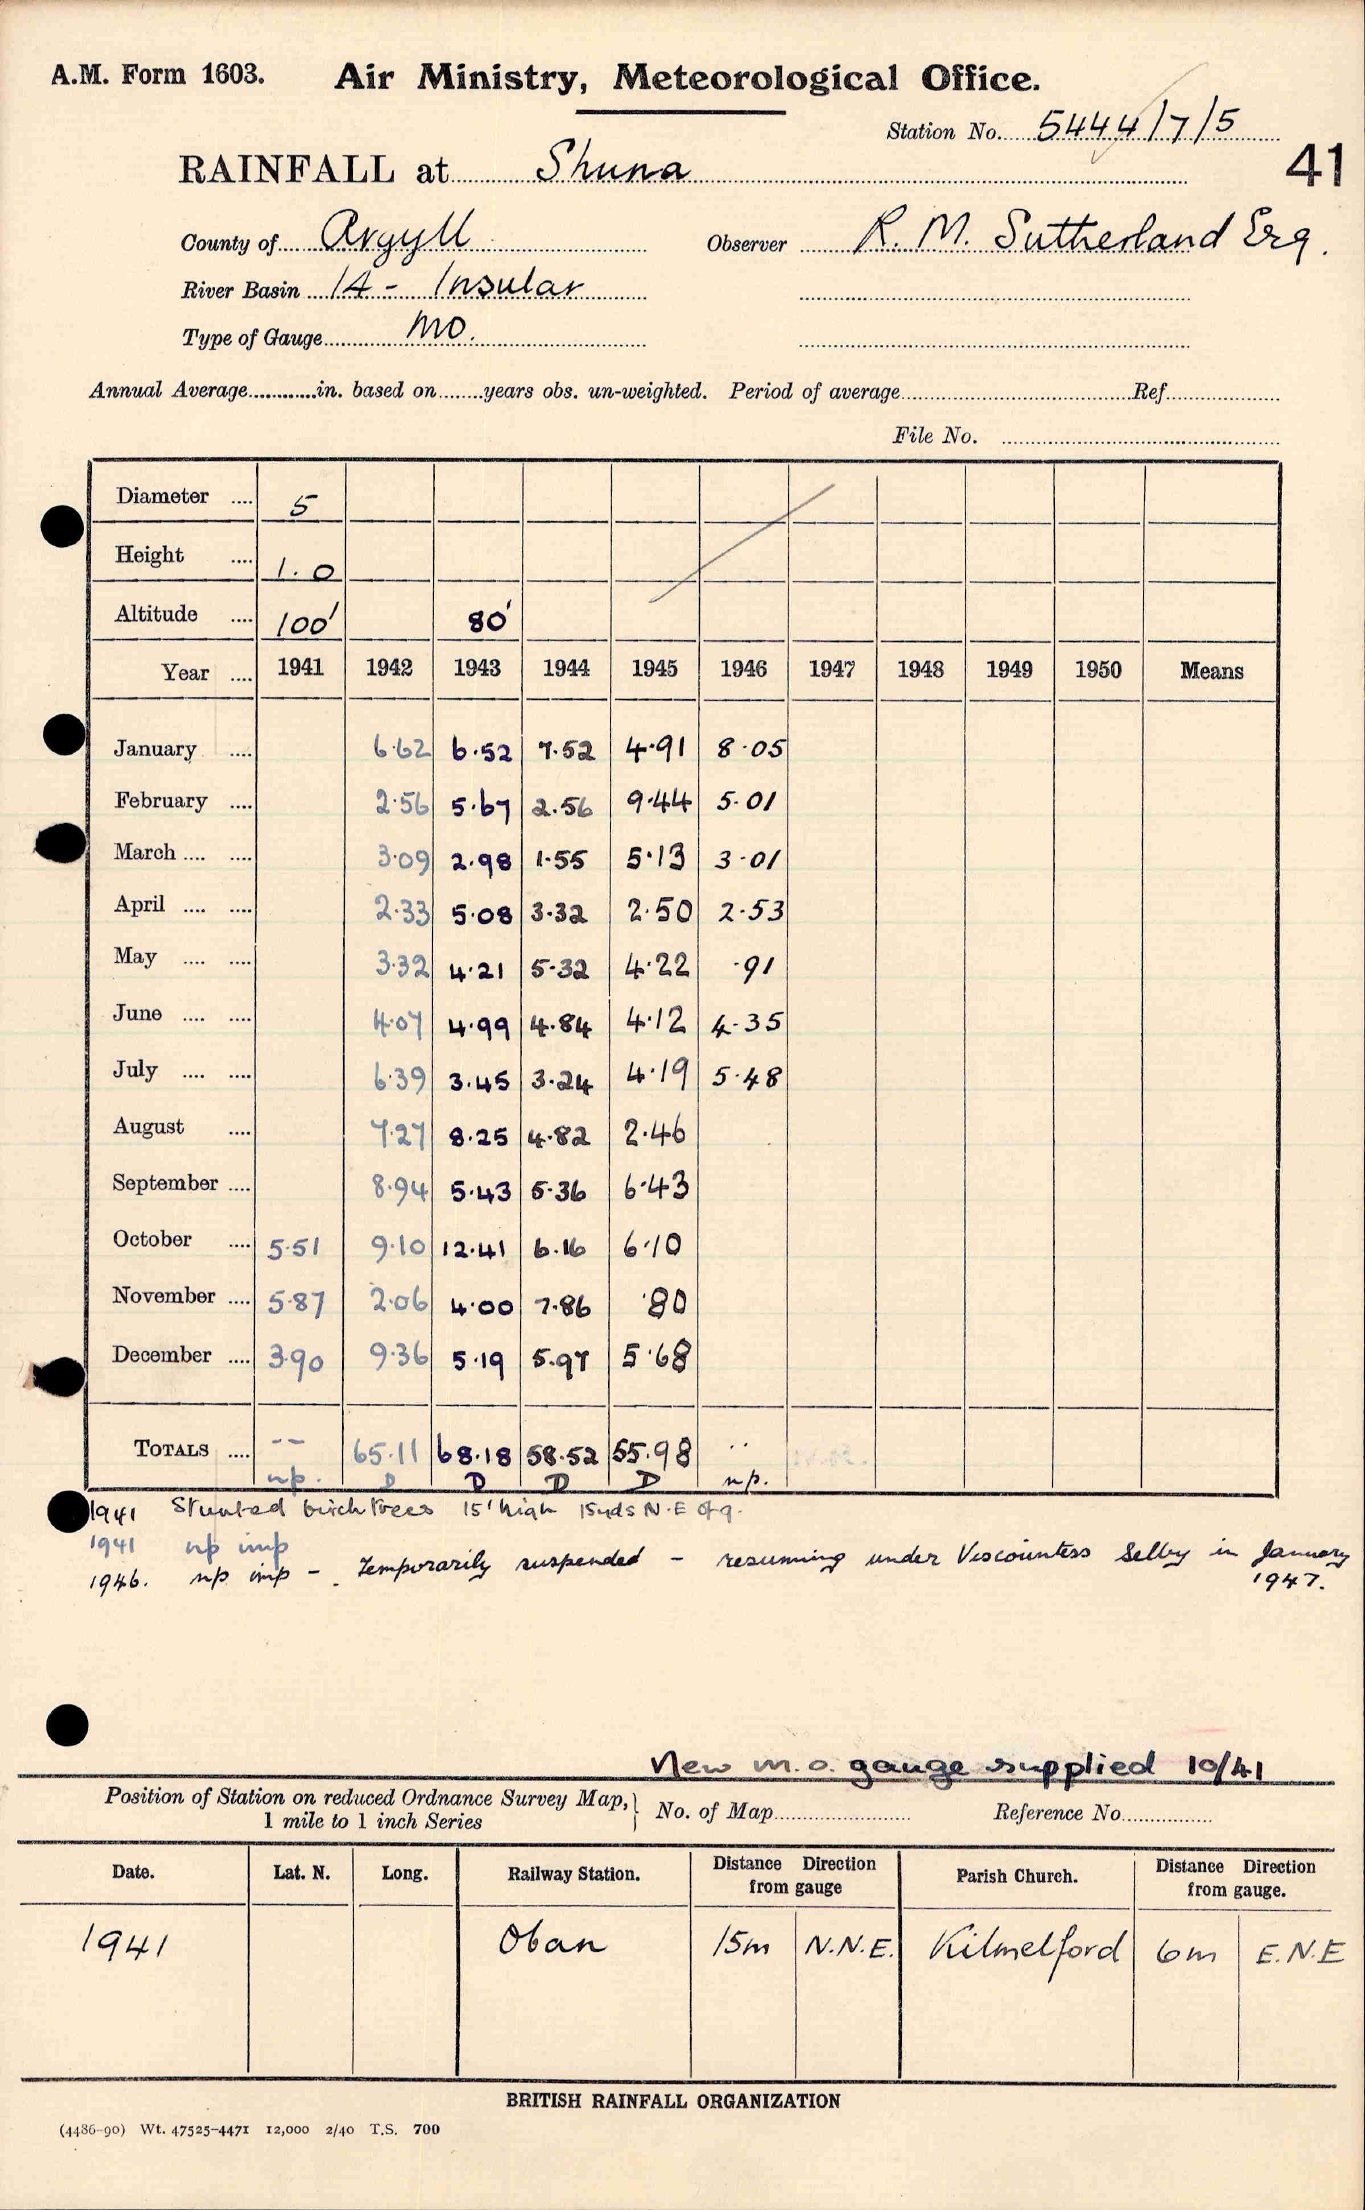 A.M. Form 1603. Air Ministry, Meteorological Office.
Station No. 5444/7/5
41
RAINFALL at Shuna
County of Argyll Observer R. M. Sutherland Esq.
River Basin 14 - Insular
Type of Gauge MO.
Annual Average............in. based on........years obs. un-weighted. Period of average........Ref........
File No. ........
Diameter .... 5
Height .... 1.0
Altitude .... 100' 80'
Year .... 1941 1942 1943 1944 1945 1946 1947 1948 1949 1950 Means
January .... 6.62 6.52 7.52 4.91 8.05
February .... 2.56 5.67 2.56 9.44 5.01
March .... .... 3.09 2.98 1.55 5.13 3.01
April .... .... 2.33 5.08 3.32 2.50 2.53
May .... .... 3.32 4.21 5.32 4.22 .91
June .... .... 4.07 4.99 4.84 4.12 4.35
July .... .... 6.39 3.45 3.24 4.19 5.48
August .... 7.27 8.25 4.82 2.46
September .... 8.94 5.43 5.36 6.43
October .... 5.51 9.10 12.41 6.16 6.10
November .... 5.87 2.06 4.00 7.86 .80
December .... 3.90 9.36 5.19 5.97 5.68
TOTALS .... -- 65.11 68.18 58.52 55.98 ..
np. D D D D np.
1941 Stunted birch trees 15' high 15yds N.E of g.
1941 np imp
1946. np imp - Temporarily suspended - resuming under Viscountess Selby in January
1947.
New m.o. gauge supplied 10/41
Position of Station on reduced Ordnance Survey Map, } No. of Map........ Reference No........
1 mile to 1 inch Series
Date. Lat. N. Long. Railway Station. Distance Direction from gauge Parish Church. Distance Direction from gauge.
1941 Oban 15m N.N.E. Kilmelford 6m E.N.E
BRITISH RAINFALL ORGANIZATION
(4486-90) Wt. 47525-4471 12,000 2/40 T.S. 700